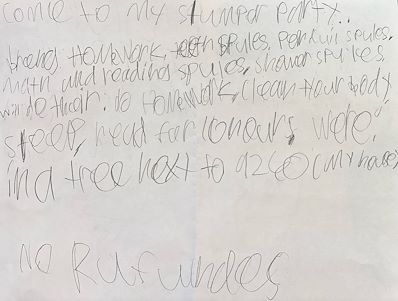 come to my slumpar party.
breng HomeWork, teeth spules, perfuir spules,
math and reading spules, shawar spules
will do thair: do HomeWork, clean your body
sleep, read far 10 hours were
in a tree next to 9260 (my house)
NO Rufundes